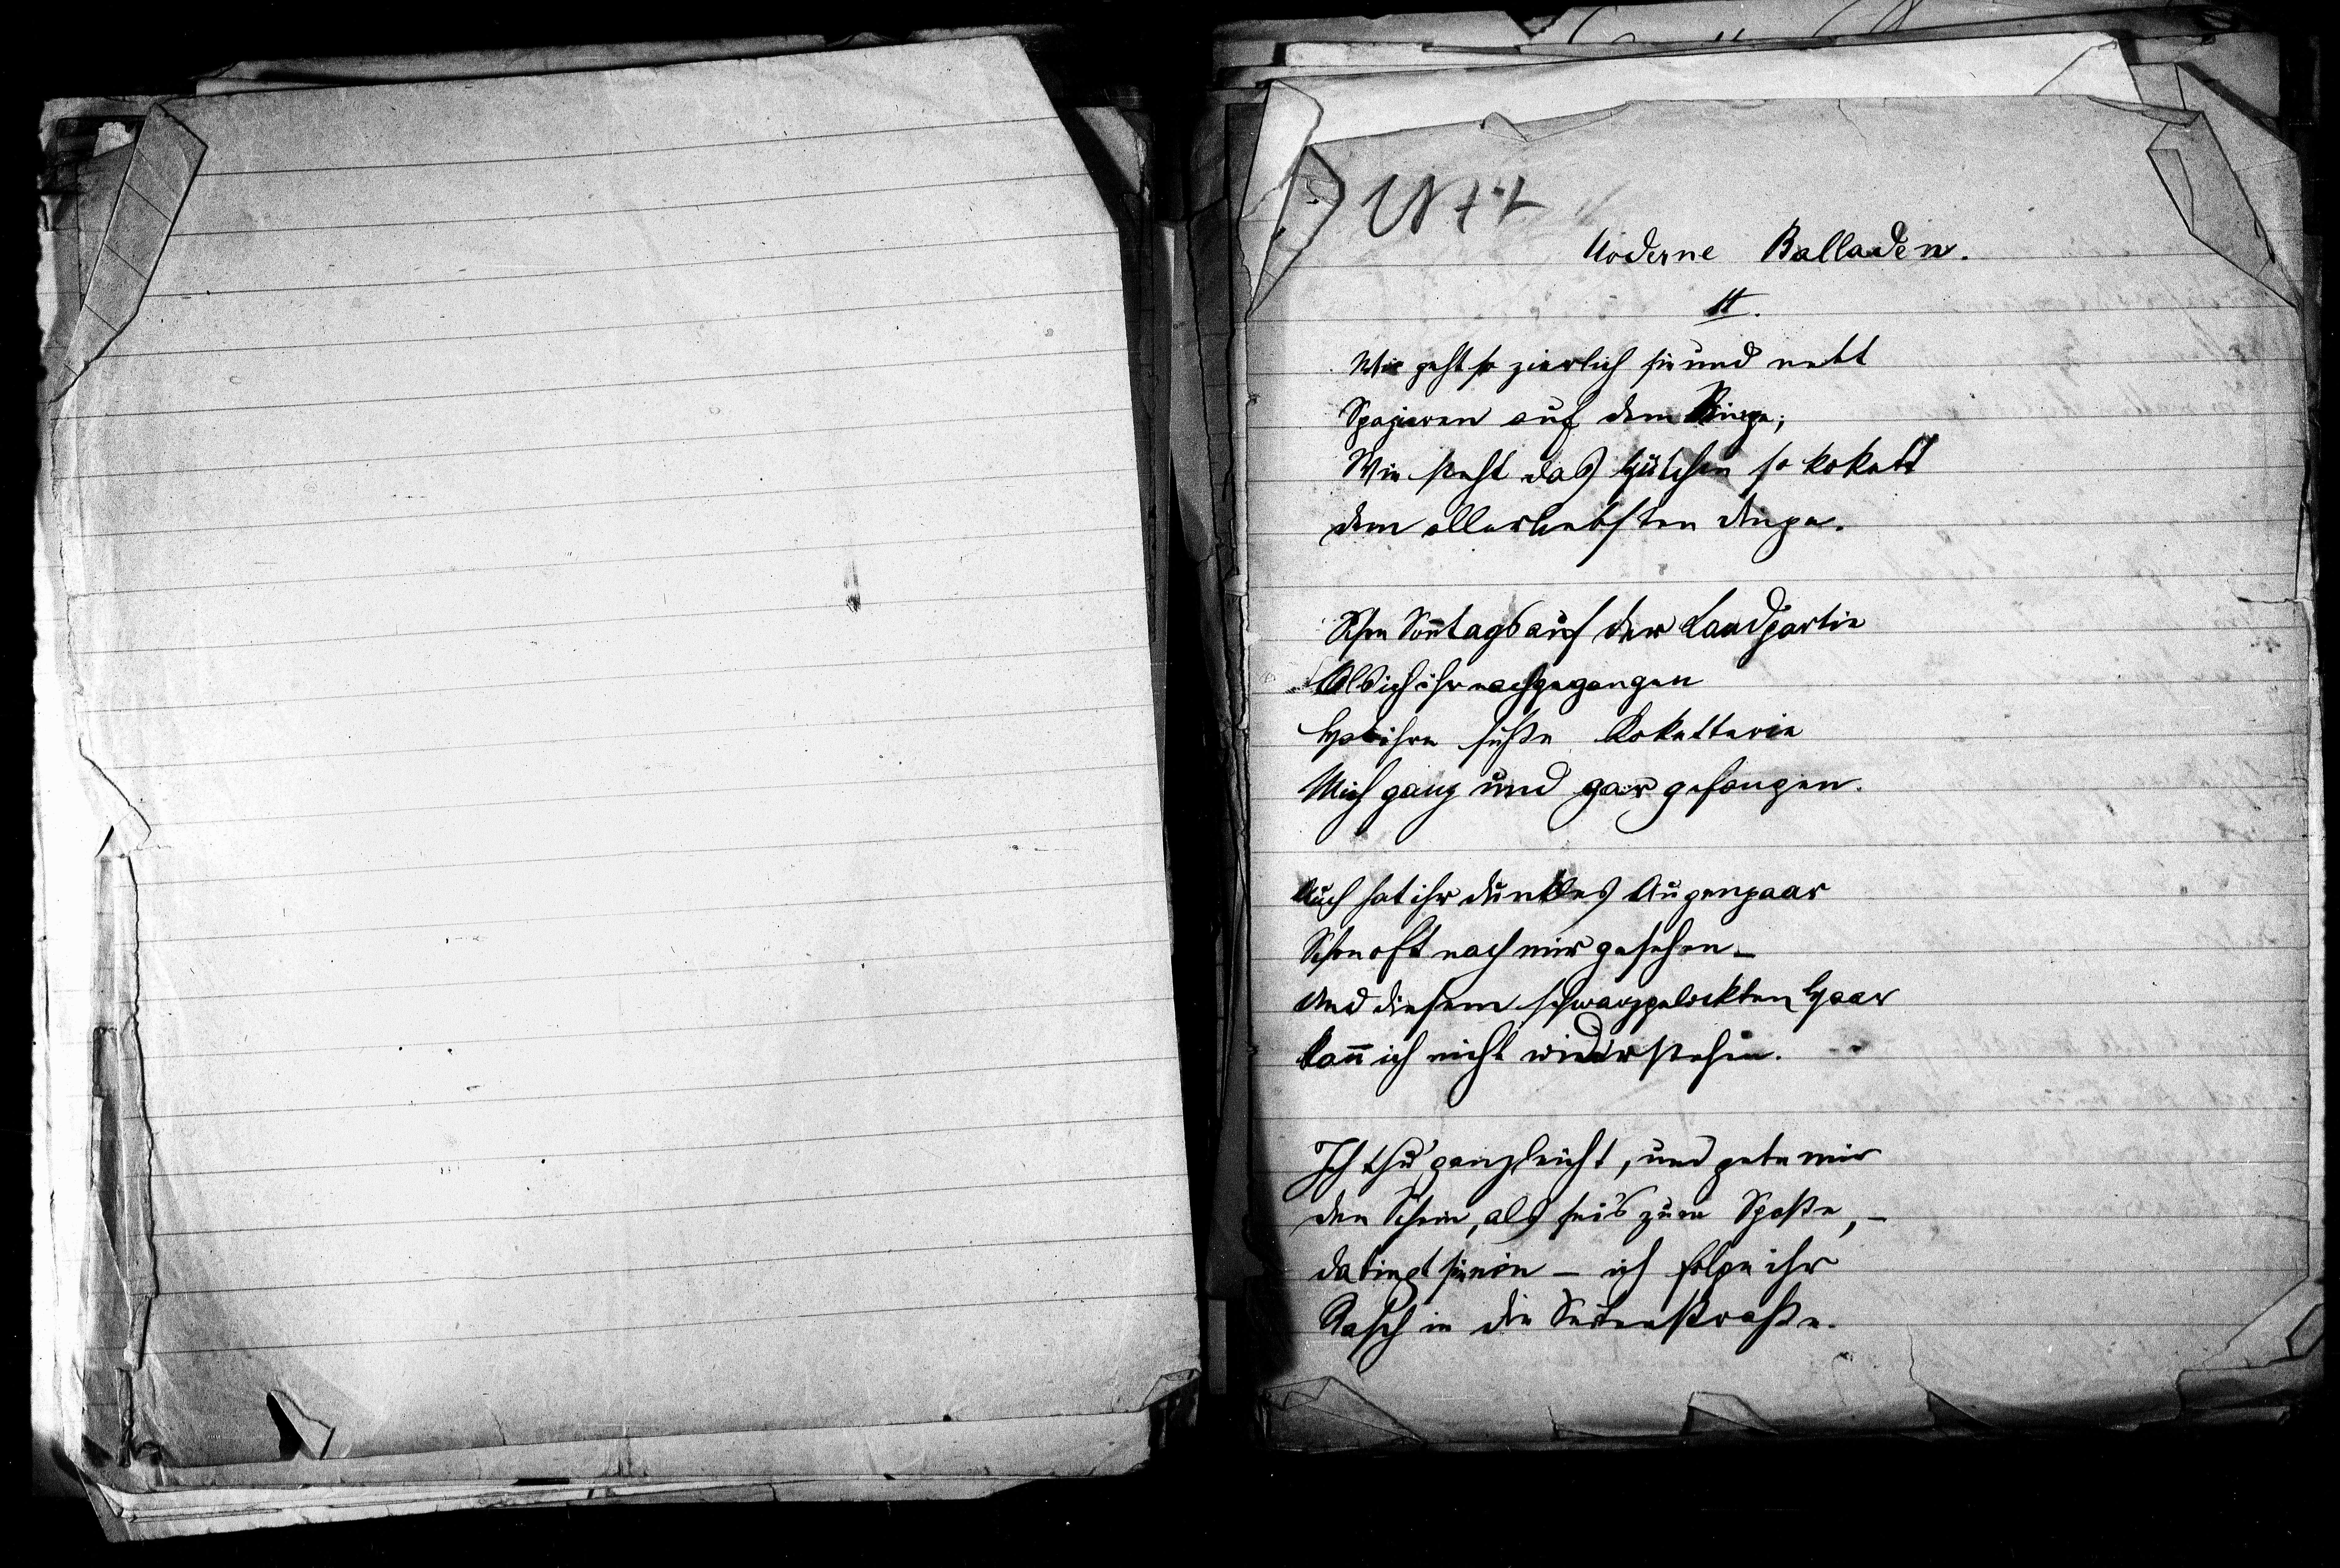 Moderne Balladen.
II.
Wie geht so zierlich sie und nett
Spazieren auf dem Ringe;
Wie steht das Hütchen so kokett
dem allerliebsten Dinge.
Schon Soñtags auf der Landpartie
Als ich ihr nachgegangen
Hat ihre süße Koketterie
Mich ganz und gar gefangen.
Auch hat ihr dunkles Augenpaar
Schon oft nach mir gesehen –
Und diesem schwarzgelockten Haar
Kañ ich nicht widerstehen.
Ich thu' ganz leicht, und gebe mir
den Schein, als sei's zum Spaße, –
da biegt sie ein – ich folge ihr
Rasch in die Seitenstraße.